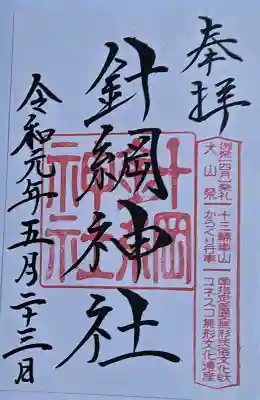 奉拝
例祭(四月)奉礼 十三輌車山 国指定重要無形民俗文化財
犬山祭 からくり行事 ユネスコ無形文化遺産
針綱神社
針綱神社
令和元年五月二十三日